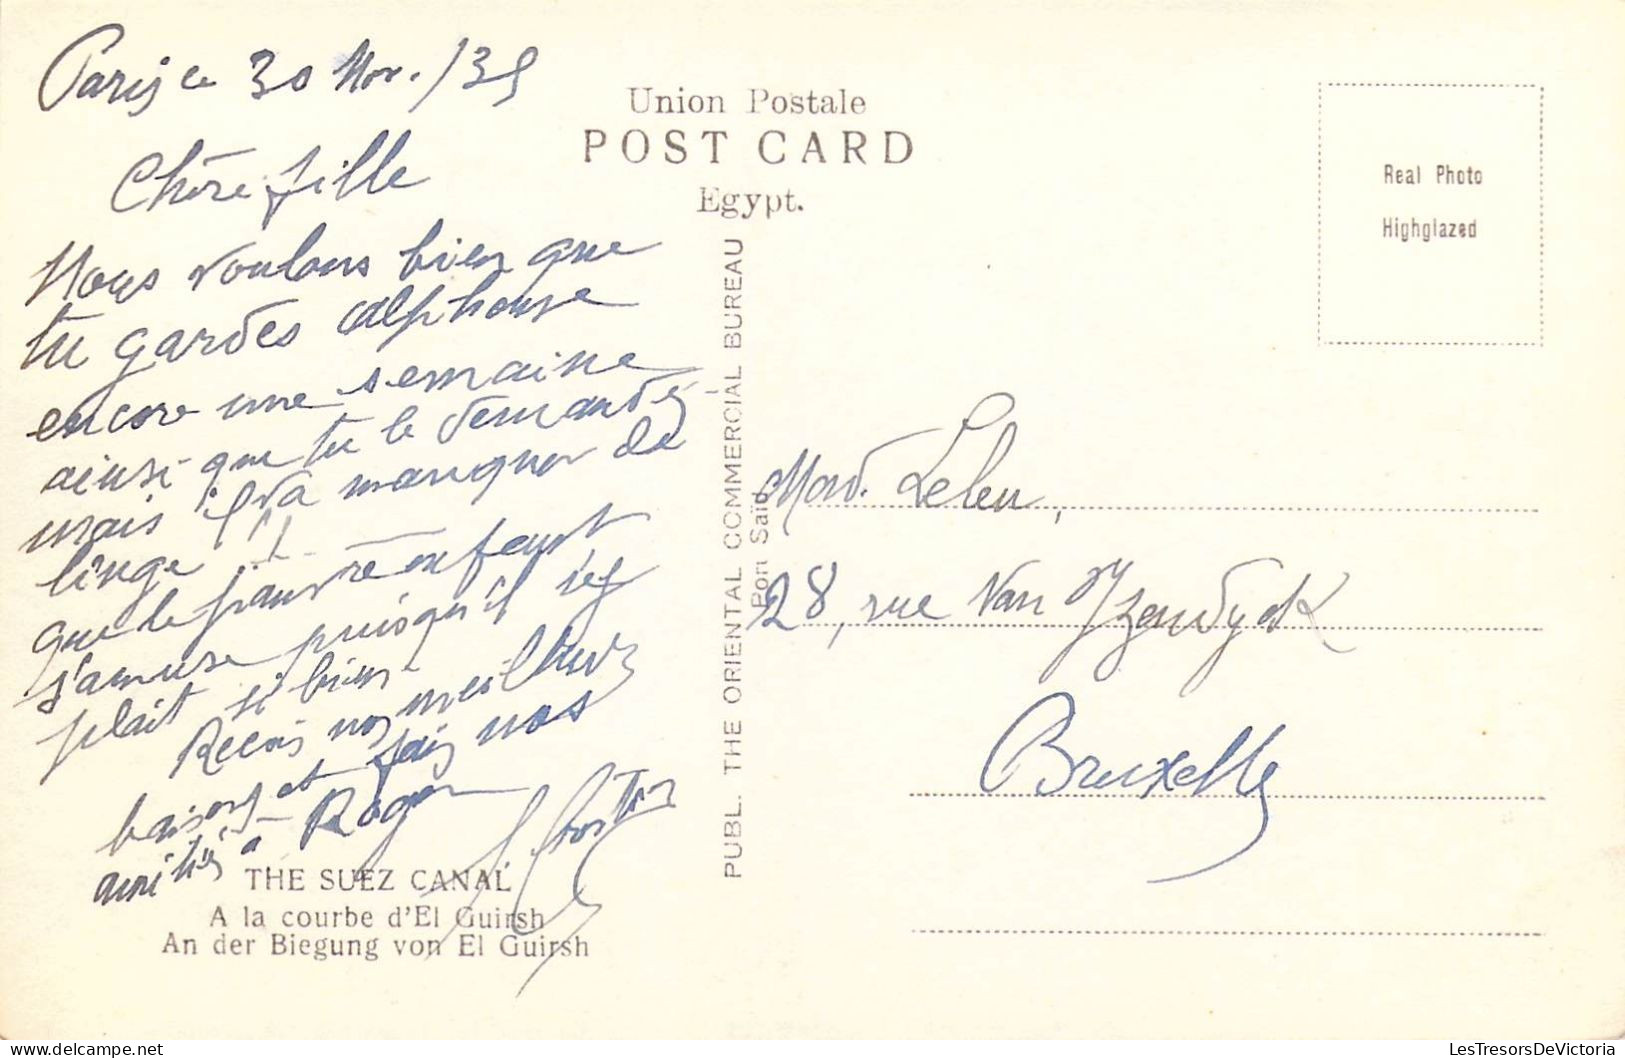 Paris ce 30 Nov. /35
Chère fille
Nous voulons bien que
tu gardes Alphonse
encore une semaine
ainsi que tu le demandes
mais il va manquer de
linge !!
que le pauvre enfant
s'amuse puisqu'il s'y
plait si bien
Recois nos meilleurs
baisers et fais nos
amitiés a Roger
Union Postale
POST CARD
Egypt.
Real Photo
Highglazed
PUBL. THE ORIENTAL COMMERCIAL BUREAU
Port Saïd
Mad. Leleu,
28, rue Van Yzendyck
Bruxelles
THE SUEZ CANAL
A la courbe d'El Guirsh
An der Biegung von El Guirsh
LesTresorsDeVictoria